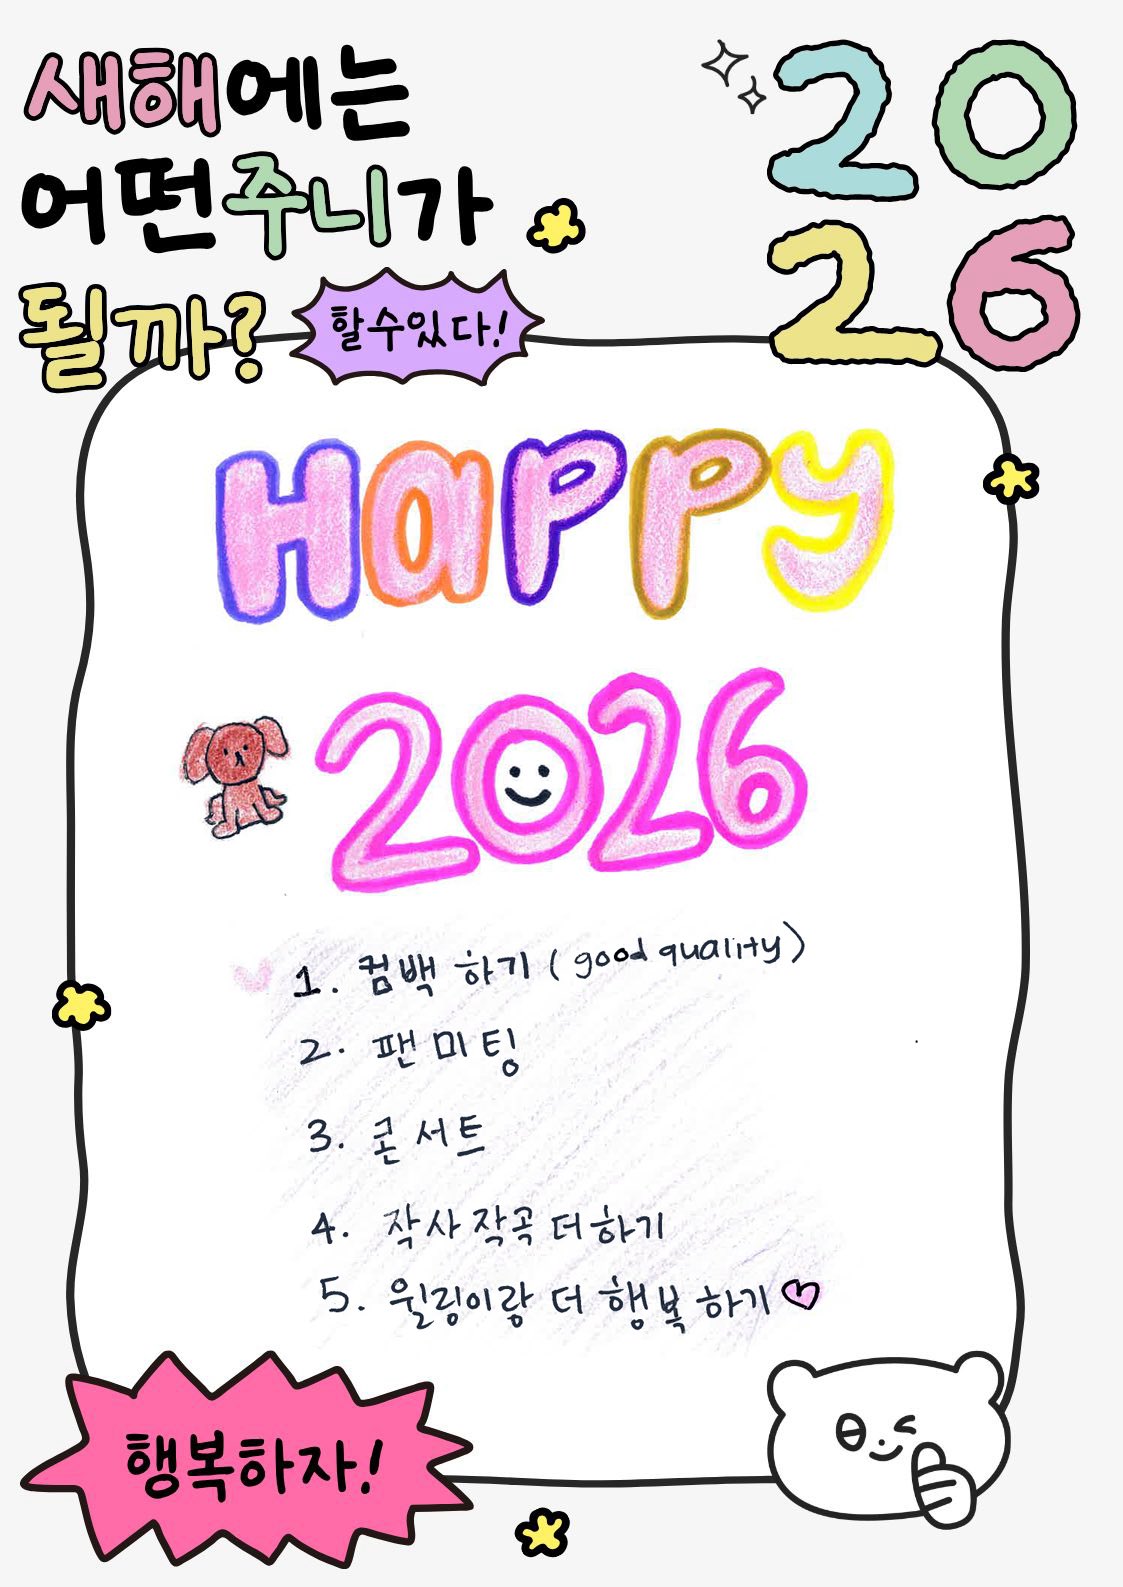 새해에는
어떤주니가
될까?
할수있다!
20
26
Happy
2026
1. 컴백 하기 ( good quality )
2. 팬 미 팅
3. 콘 서 트
4. 작사 작곡 더 하기
5. 윌링이랑 더 행복 하기♡
행복하자!